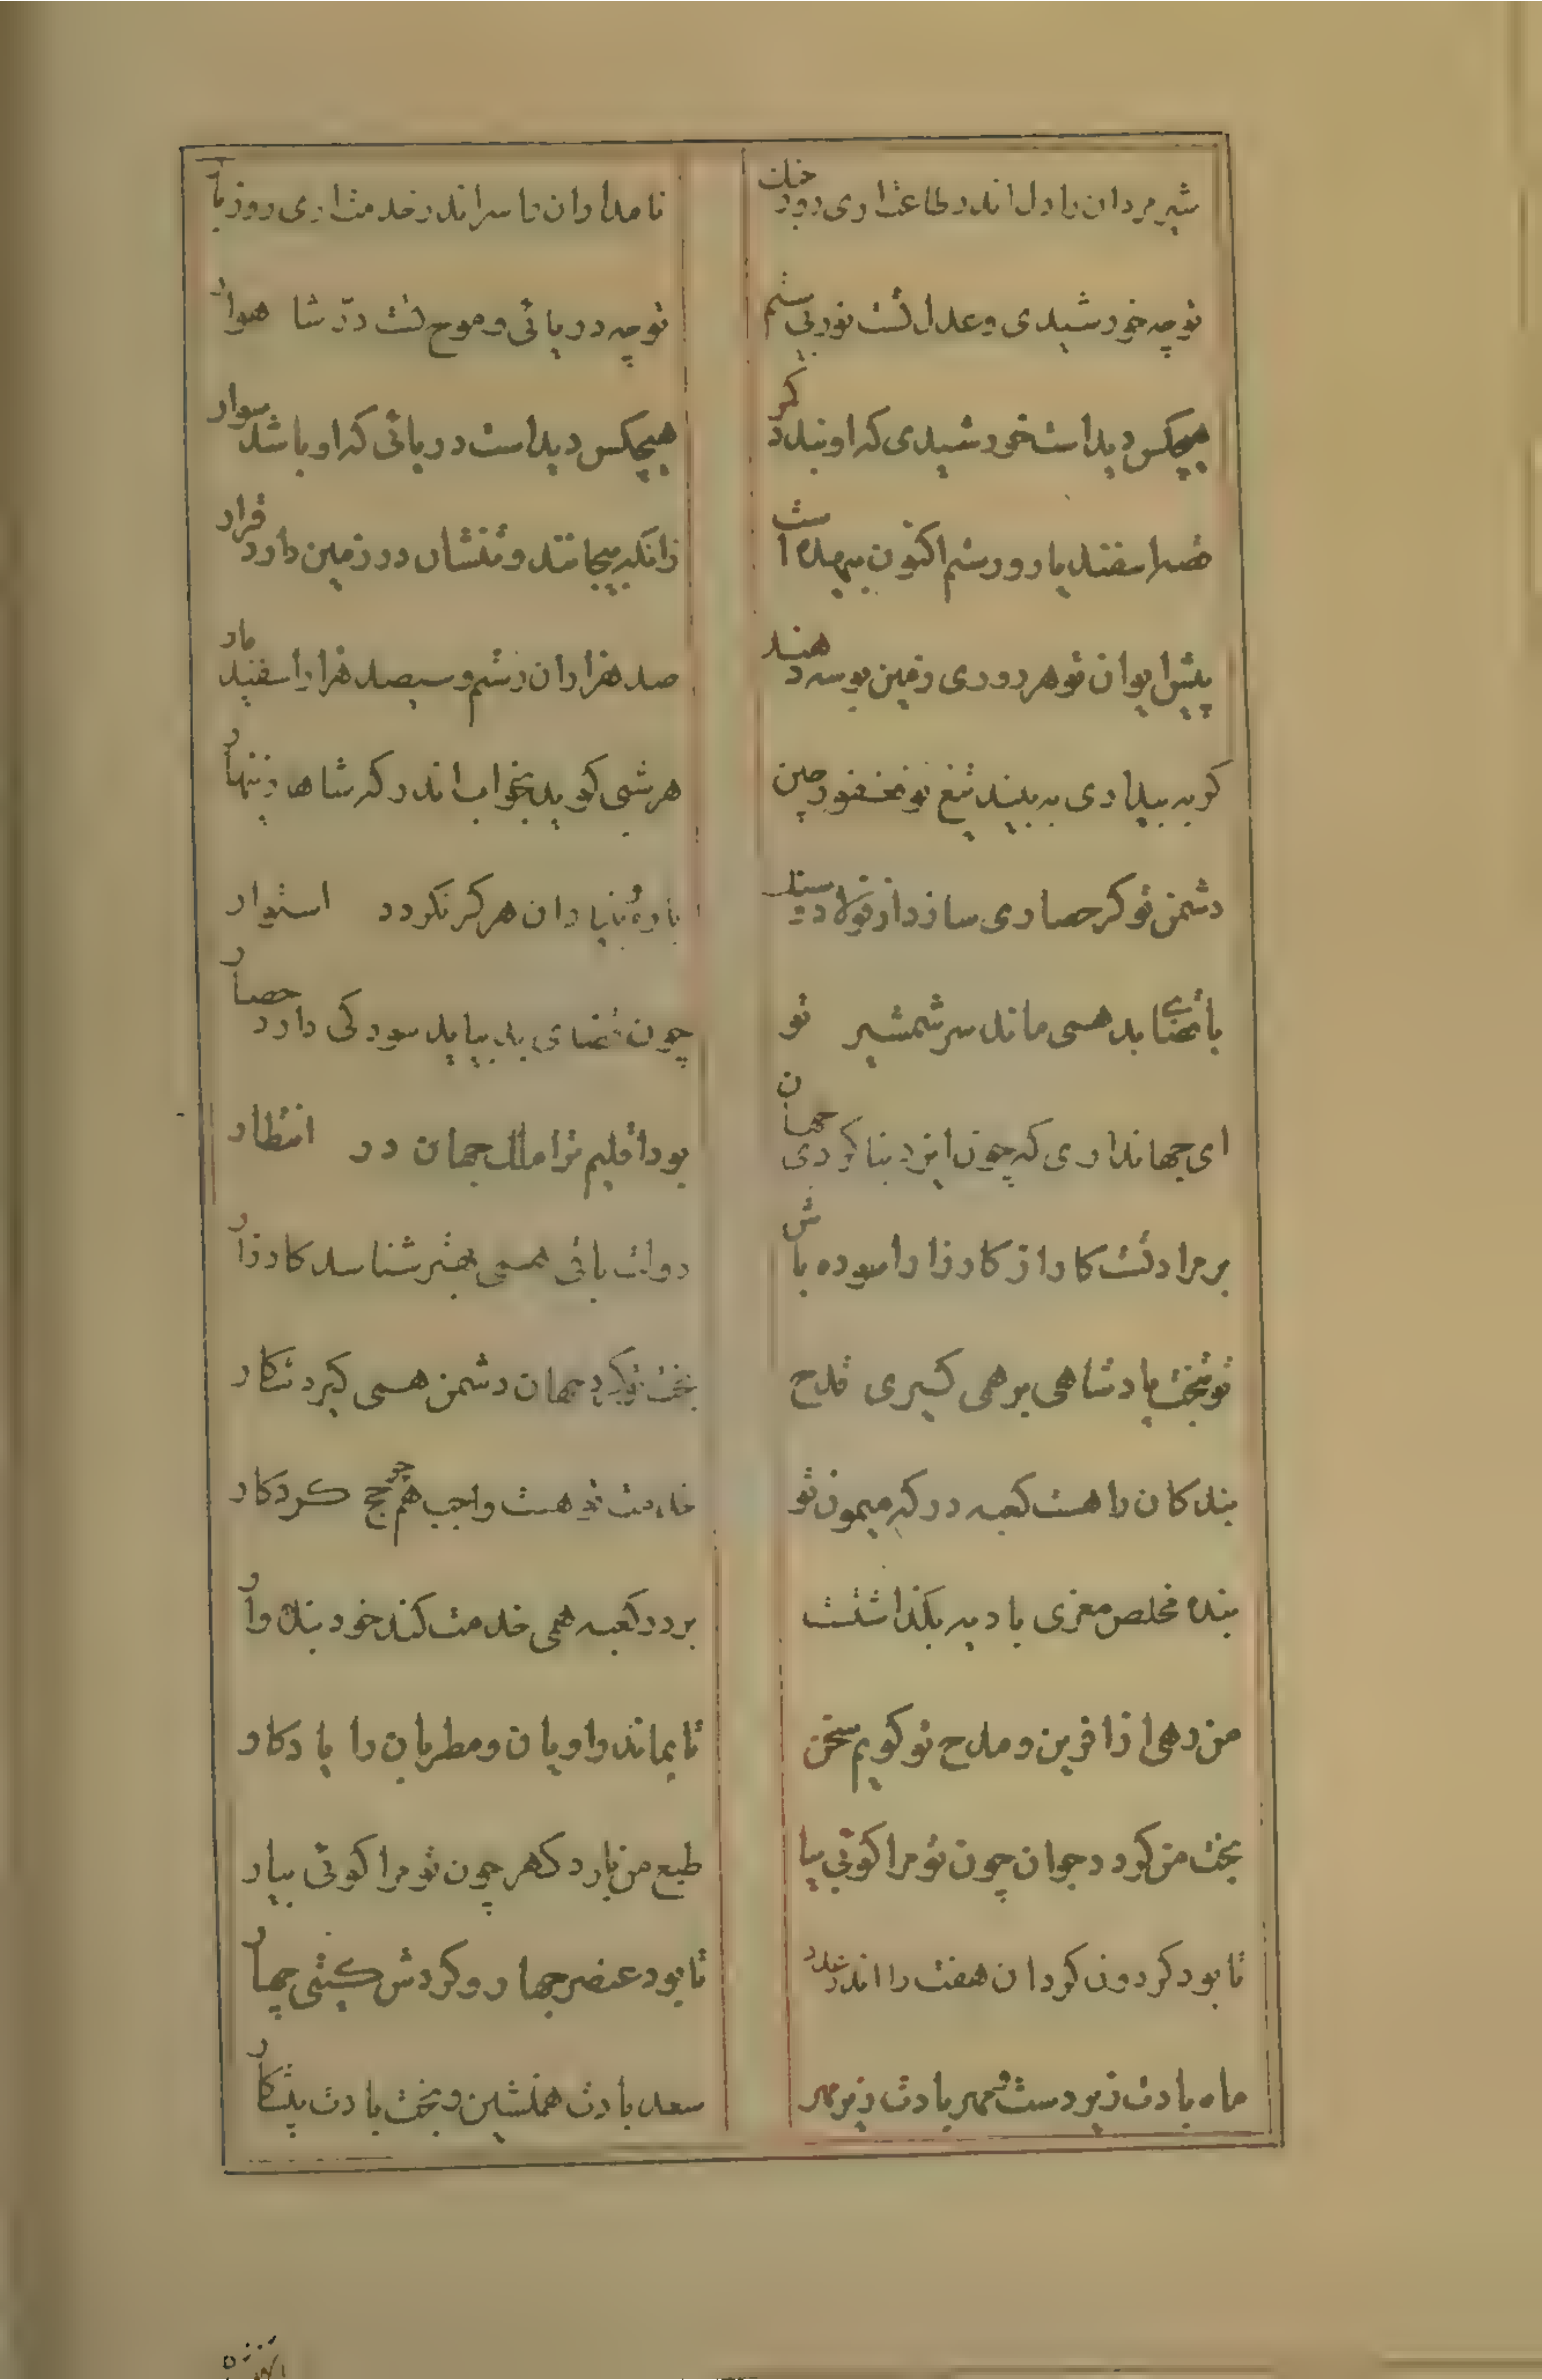 شیر مردان را دل اندر طاعت اری روز جنک
نامداران را سر اندر خدمت اری روز بار
تو چه خورشیدی و عدل تست نور بی ستم
تو چه دریائی و موج تست درّ شا هوار
هیچکس دیداست خورشیدی که او بندد کمر
هیچکس دیداست دریائی که او باشد سوار
قصه اسفندیار و رستم اکنون بیهده است
زانکه بیجانند و تنشان در زمین دارد قرار
پیش ایوان تو هر روزی زمین بوسه دهند
صد هزاران رستم و سیصد هزار اسفندیار
کر به بیداری به بیند تیغ تو فغفور چین
هر شبی کوید بخواب اندر که شاها زینهار
دشمن تو کر حصاری سازد از پولاد
بارهٔ بنیاد ان هرکز نکردد استوار
با قضای بد همی ماند سر شمشیر تو
چون قضای بد بیاید سود کی دارد حصار
ای جهانداری که چون ایزد بنا کردی جهان
بود اقلیم ترا ملک جهان در انتظار
بر مرادتست کار از کارزار اسوده باش
دولت باقی همی بهتر شناسد کارزار
تو بتخت پادشاهی بر همی کیری قدح
بخت تو کرد جهان دشمن همی کیرد شکار
بندکان را هست کعبه درکه میمون تو
خدمت تو هست واجب هم چو حج کردکار
بنده مخلص معزی بادیه بکذاشتست
بر در کعبه همی خدمت کند خود بنده وار
من رهی از افرین و مدح تو کویم سخن
تا بماند راویان و مطربان را یادکار
بخت من کردد جوان چون تو مرا کوئی بیا
طبع من بارد کهر چون تو مرا کوئی بیار
تا بود کردون کردان هفت را اندر عدد
تا بود عنصر چهار و کردش کیتی چهار
ماه بادت زیر دست و مهر بادت زیر مهر
سعد بادت همنشین و بخت بادت پیشکار